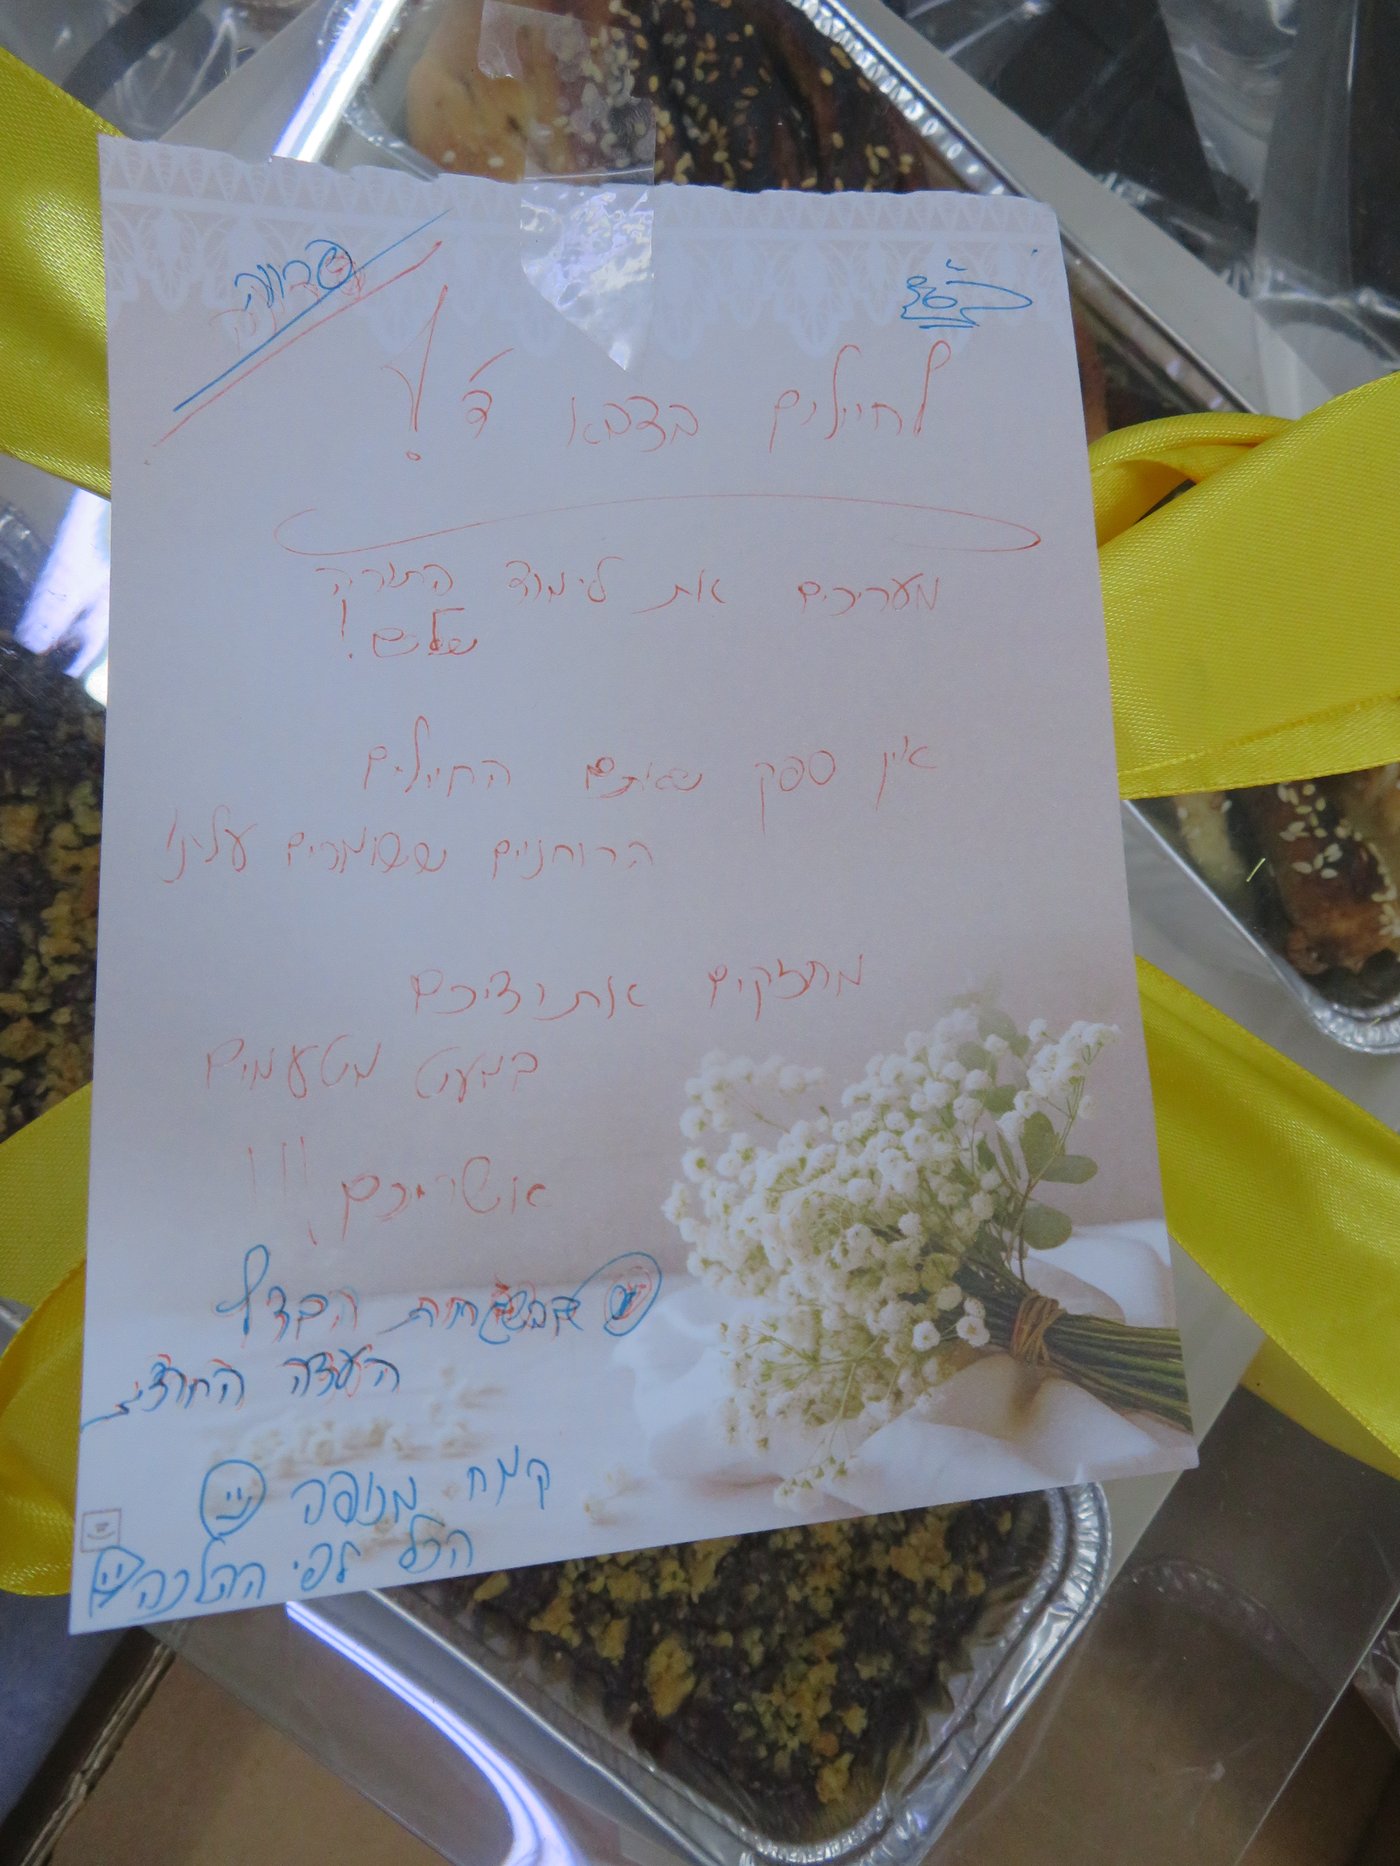 בס"ד
פרווה
לחיילים בצבא ד'!
מעריכים את לימוד התורה
שלכם!
אין ספק שאתם החיילים
הרוחניים ששומרים עלינו
מחזקים את ידיכם
במעט מטעמים
אשריכם!!!
בהשגחת הבד"ץ
העדה החרדית
קמח מנופה
הכל לפי ההלכה